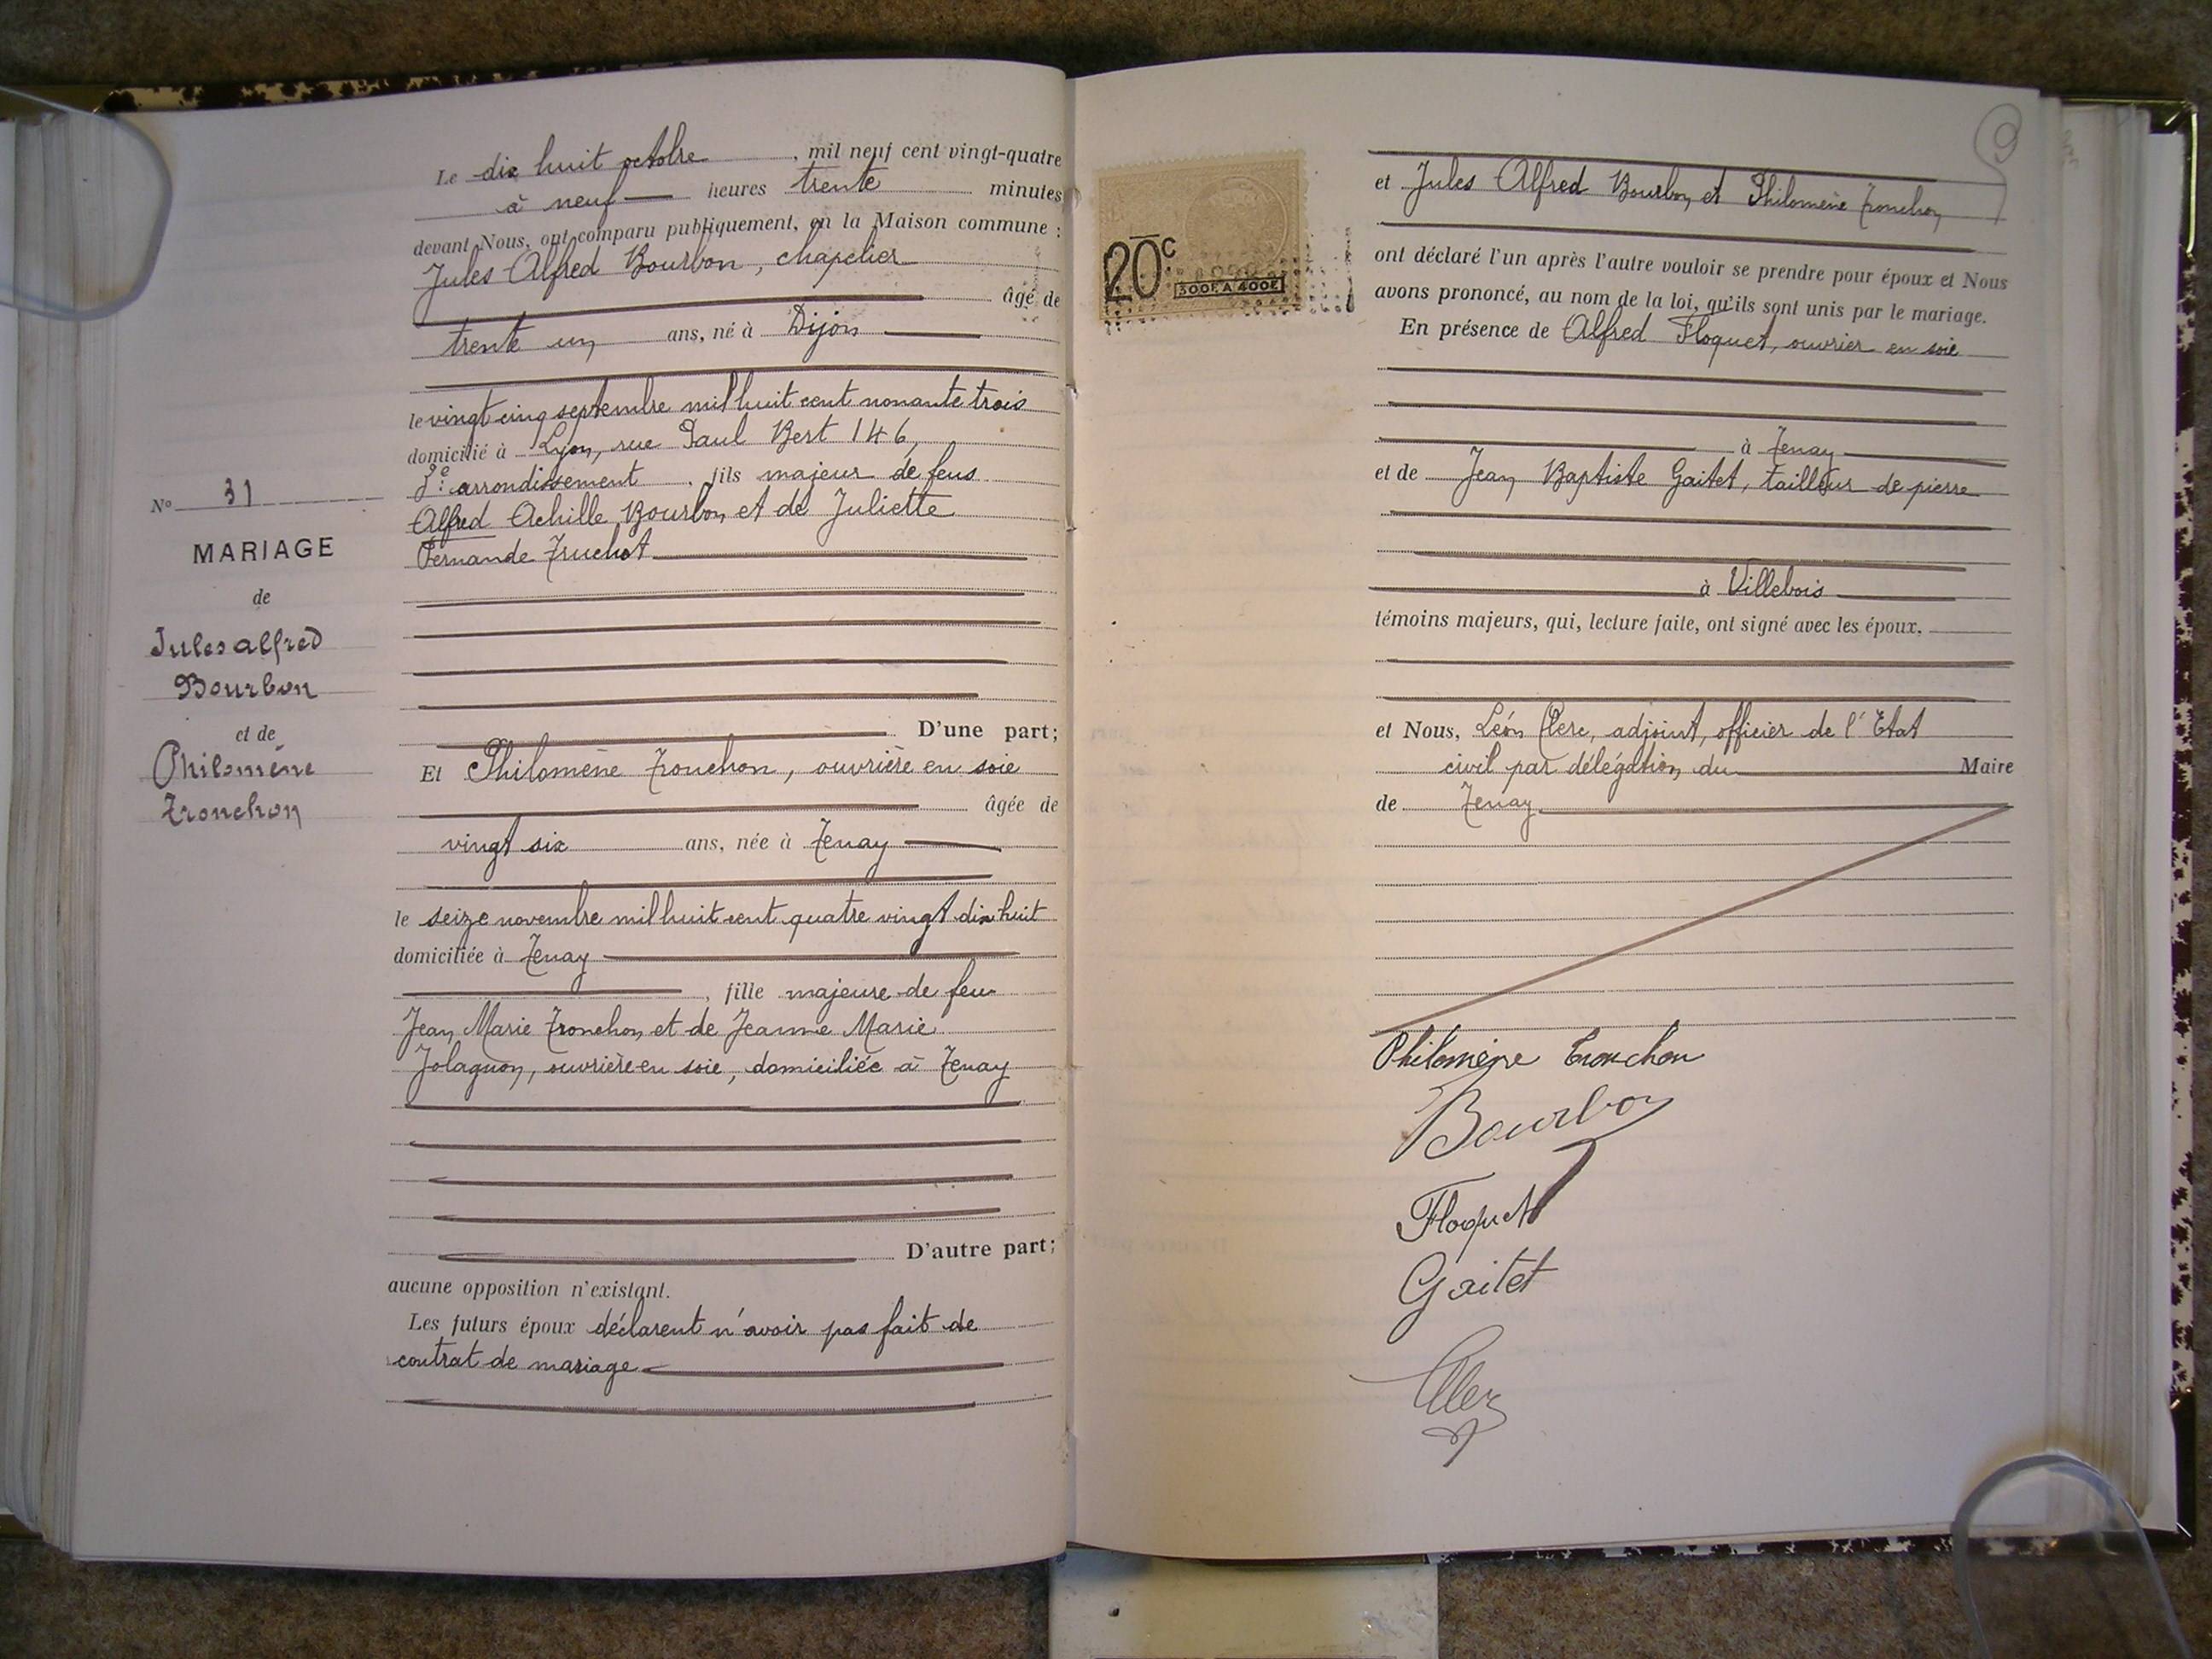 Le dix huit octobre, mil neuf cent vingt-quatre
à neuf heures trente minutes
devant Nous, ont comparu publiquement, en la Maison commune :
Jules Alfred Bourbon, chapelier
âgé de
trente un ans, né à Dijon
le vingt cinq septembre mil huit cent nonante trois
domicilié à Lyon, rue Paul Bert 146,
3e arrondissement, fils majeur de feus
Alfred Achille Bourbon et de Juliette
Fernande Truchot
D'une part;
Et Philomène Tronchon, ouvrière en soie
âgée de
vingt six ans, née à Tenay
le seize novembre mil huit cent quatre vingt dix huit
domiciliée à Tenay
, fille majeure de feu
Jean Marie Tronchon et de Jeanne Marie
Jolagnon, ouvrière en soie, domiciliée à Tenay
D'autre part;
aucune opposition n'existant.
Les futurs époux déclarent n'avoir pas fait de
contrat de mariage
No 31
MARIAGE
de
Jules alfred
Bourbon
et de
Philomène
Tronchon
20c
300F A 400F
9
et Jules Alfred Bourbon et Philomène Tronchon
ont déclaré l'un après l'autre vouloir se prendre pour époux et Nous
avons prononcé, au nom de la loi, qu'ils sont unis par le mariage.
En présence de Alfred Floquet, ouvrier en soie
à Tenay
et de Jean Baptiste Gaitet, tailleur de pierre
à Villebois
témoins majeurs, qui, lecture faite, ont signé avec les époux,
et Nous, Léon Clerc, adjoint, officier de l'Etat
civil par délégation du Maire
de Tenay
Philomène Tronchon
Bourbon
Floquet
Gaitet